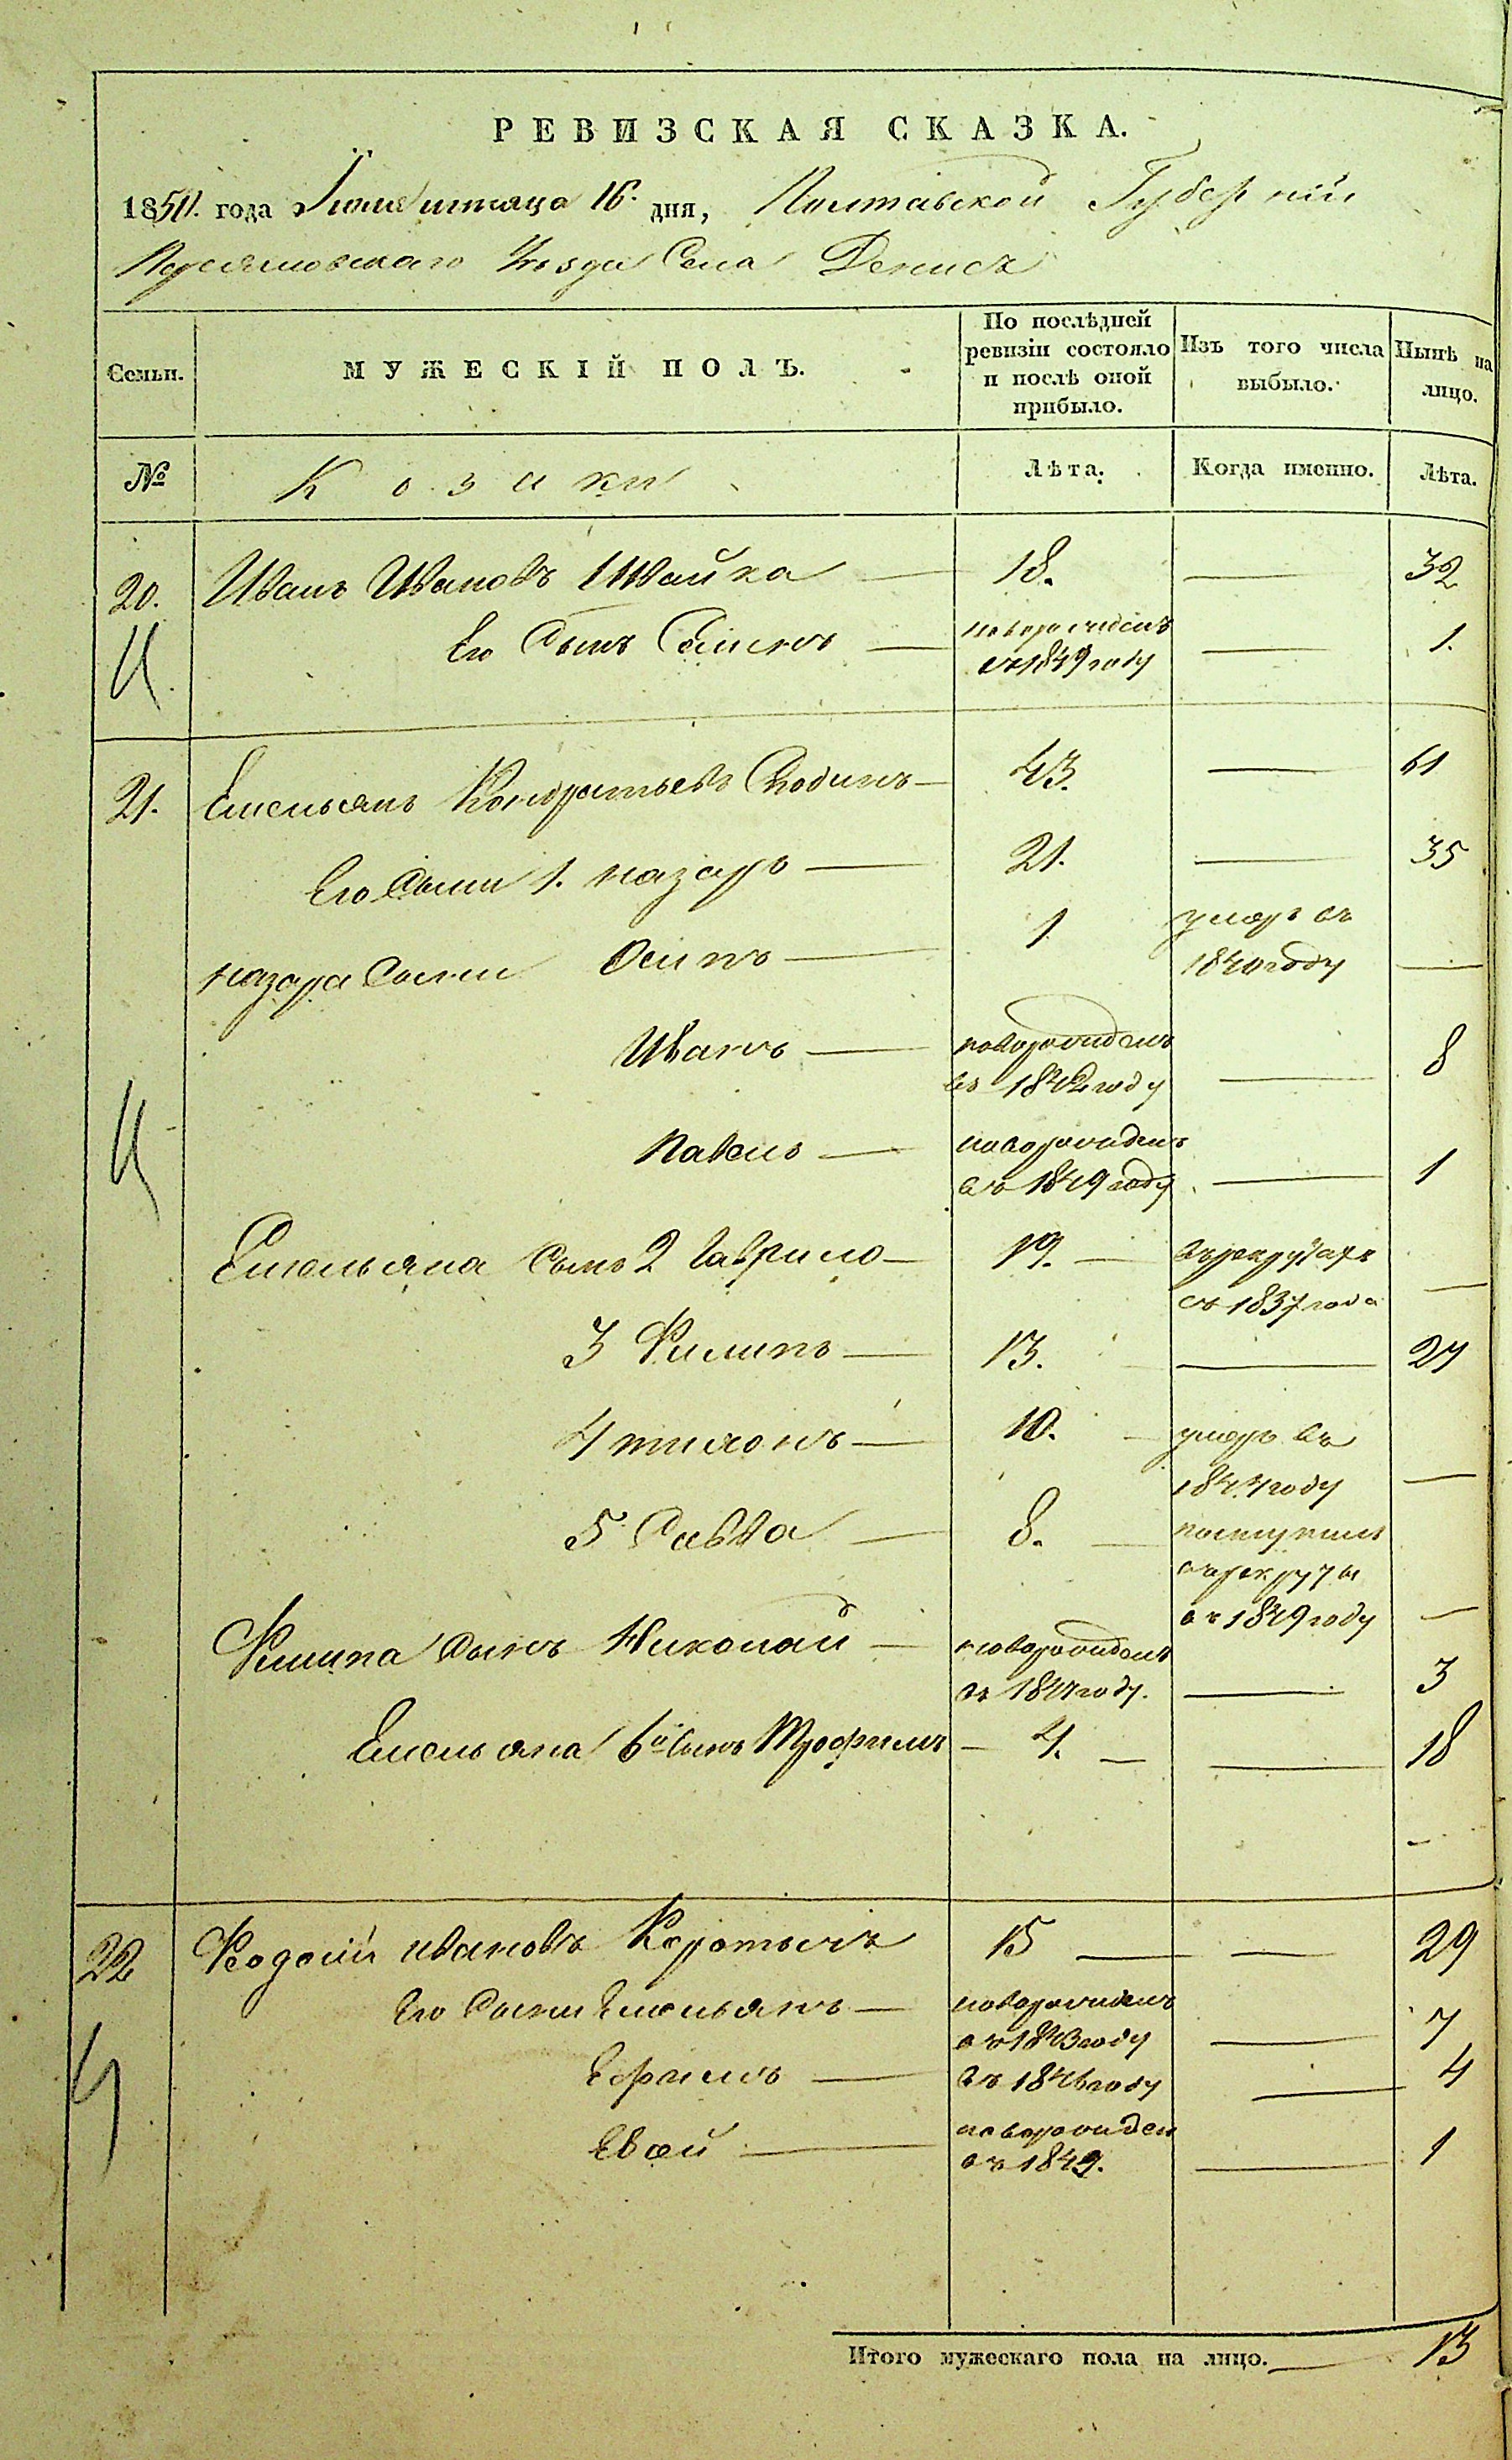 РЕВИЗСКАЯ СКАЗКА.
1850. года Іюня месяца 16. дня, Полтавской Губерніи
Переясловскаго Уезда Села Денисъ
Семьи. МУЖЕСКІЙ ПОЛЪ. По послѣдней ревизіи состояло и послѣ оной прибыло. Изъ того числа выбыло. Нынѣ на лицо.
№ Козаки Лѣта. Когда именно. Лѣта.
20. Иванъ Ивановъ Швайка 18. 32
Его Сынъ Семенъ новорожденъ въ 1849 году 1.
21. Емельянъ Кондратьевъ 43. 61
Его Сыни 1. назаръ 21. 35
назара Сыни Осипъ 1 умеръ въ 1840 году
Иванъ новорожденъ въ 1842 году 8
Павелъ новорожденъ въ 1849 году 1
Емельяна Сынъ 2 Гаврило 19. въ рекрутахъ съ 1837 года
3 Филипъ 13. 27
4 тихонъ 10. умеръ въ 1844 году
5 Савва 8. поступилъ въ рекруты въ 1849 году
Филипа Сынъ Николай новорожденъ въ 1847 году. 3
Емельяна 6й Сынъ Трофимъ 4. 18
22 Феодосій ивановъ Коротычъ 15 29
Его Сыни Емельянъ новорожденъ въ 1843 году 7
Ефимъ въ 1846 году 4
новорожден въ 1849. 1
Итого мужескаго пола на лицо. 13